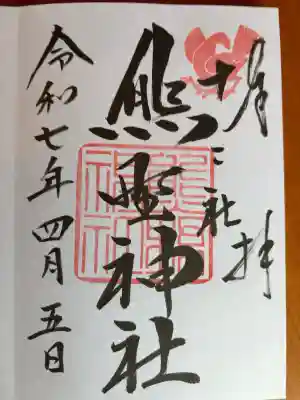 十二社
奉拝
熊野神社
令和七年四月五日